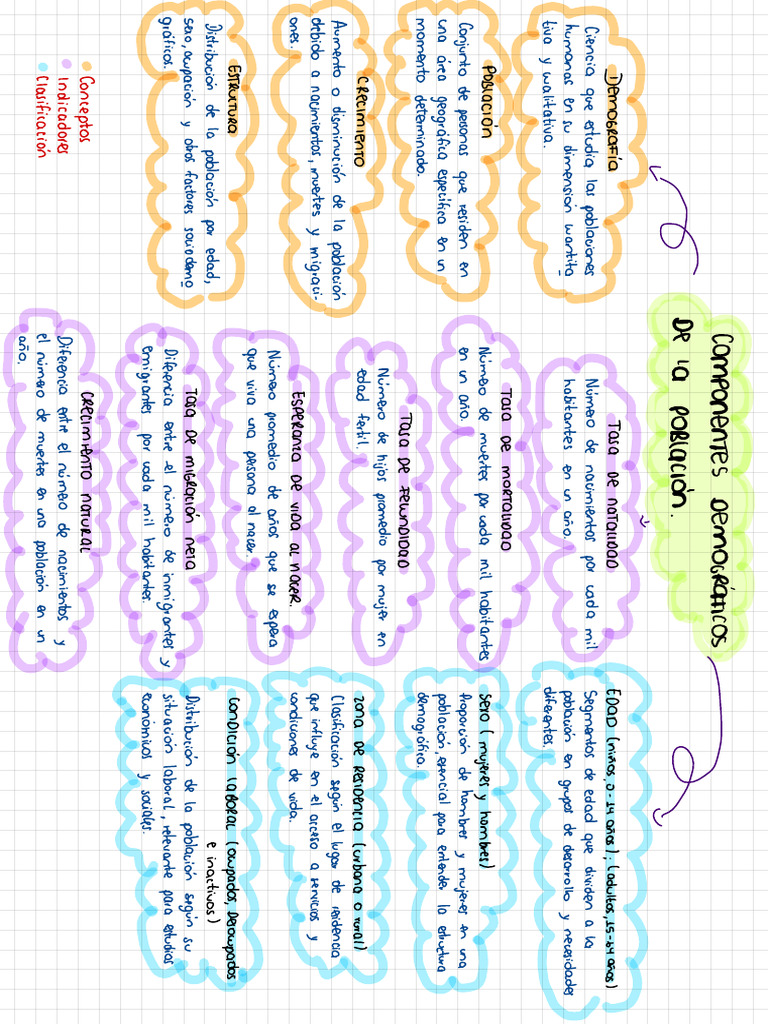 COMPONENTES DEMOGRÁFICOS
DE la POBLACIÓN.
DEMOGRAFÍA
Ciencia que estudia las poblaciones
humanas en su dimensión cuantita
tiva y cualitativa.
POBLACIÓN
Conjunto de personas que residen en
una área geográfica específica en un
momento determinado.
CRECIMIENTO
Aumento o disminución de la población
debido a nacimientos, muertes y migraci-
ones.
ESTRUCTURA
Distribución de la población por edad,
sexo, ocupación y otros factores sociodemo
gráficos.
Conceptos
Indicadores
Clasificación
TASA DE NATALIDAD
Número de nacimientos por cada mil
habitantes en un año.
TASA DE MORTALIDAD
Número de muertes por cada mil habitantes
en un año.
TASA DE FECUNDIDAD
Número de hijos promedio por mujer en
edad fertil.
ESPERANZA DE VIDA AL NACER.
Número promedio de años que se espera
que viva una persona al nacer.
TASA DE MIGRACIÓN NETA
Diferencia entre el número de inmigrantes y
emigrantes por cada mil habitantes.
CRECIMIENTO NATURAL
Diferencia entre el número de nacimientos y
el número de muertes en una población en un
año.
EDAD (niños, 0-14 años); (adultos, 15-64 años)
Segmentos de edad que dividen a la
población en grupos de desarrollo y necesidades
diferentes.
SEXO (mujeres y hombres)
Proporción de hombres y mujeres en una
población, esencial para entender la estructura
demográfica.
ZONA DE RESIDENCIA (urbana o rural)
Clasificación según el lugar de residencia
que influye en el acceso a servicios y
condiciones de vida.
CONDICIÓN LABORAL (ocupados, Desocupados
e inactivos)
Distribución de la población según su
situación laboral, relevante para estudios
económicos y sociales.